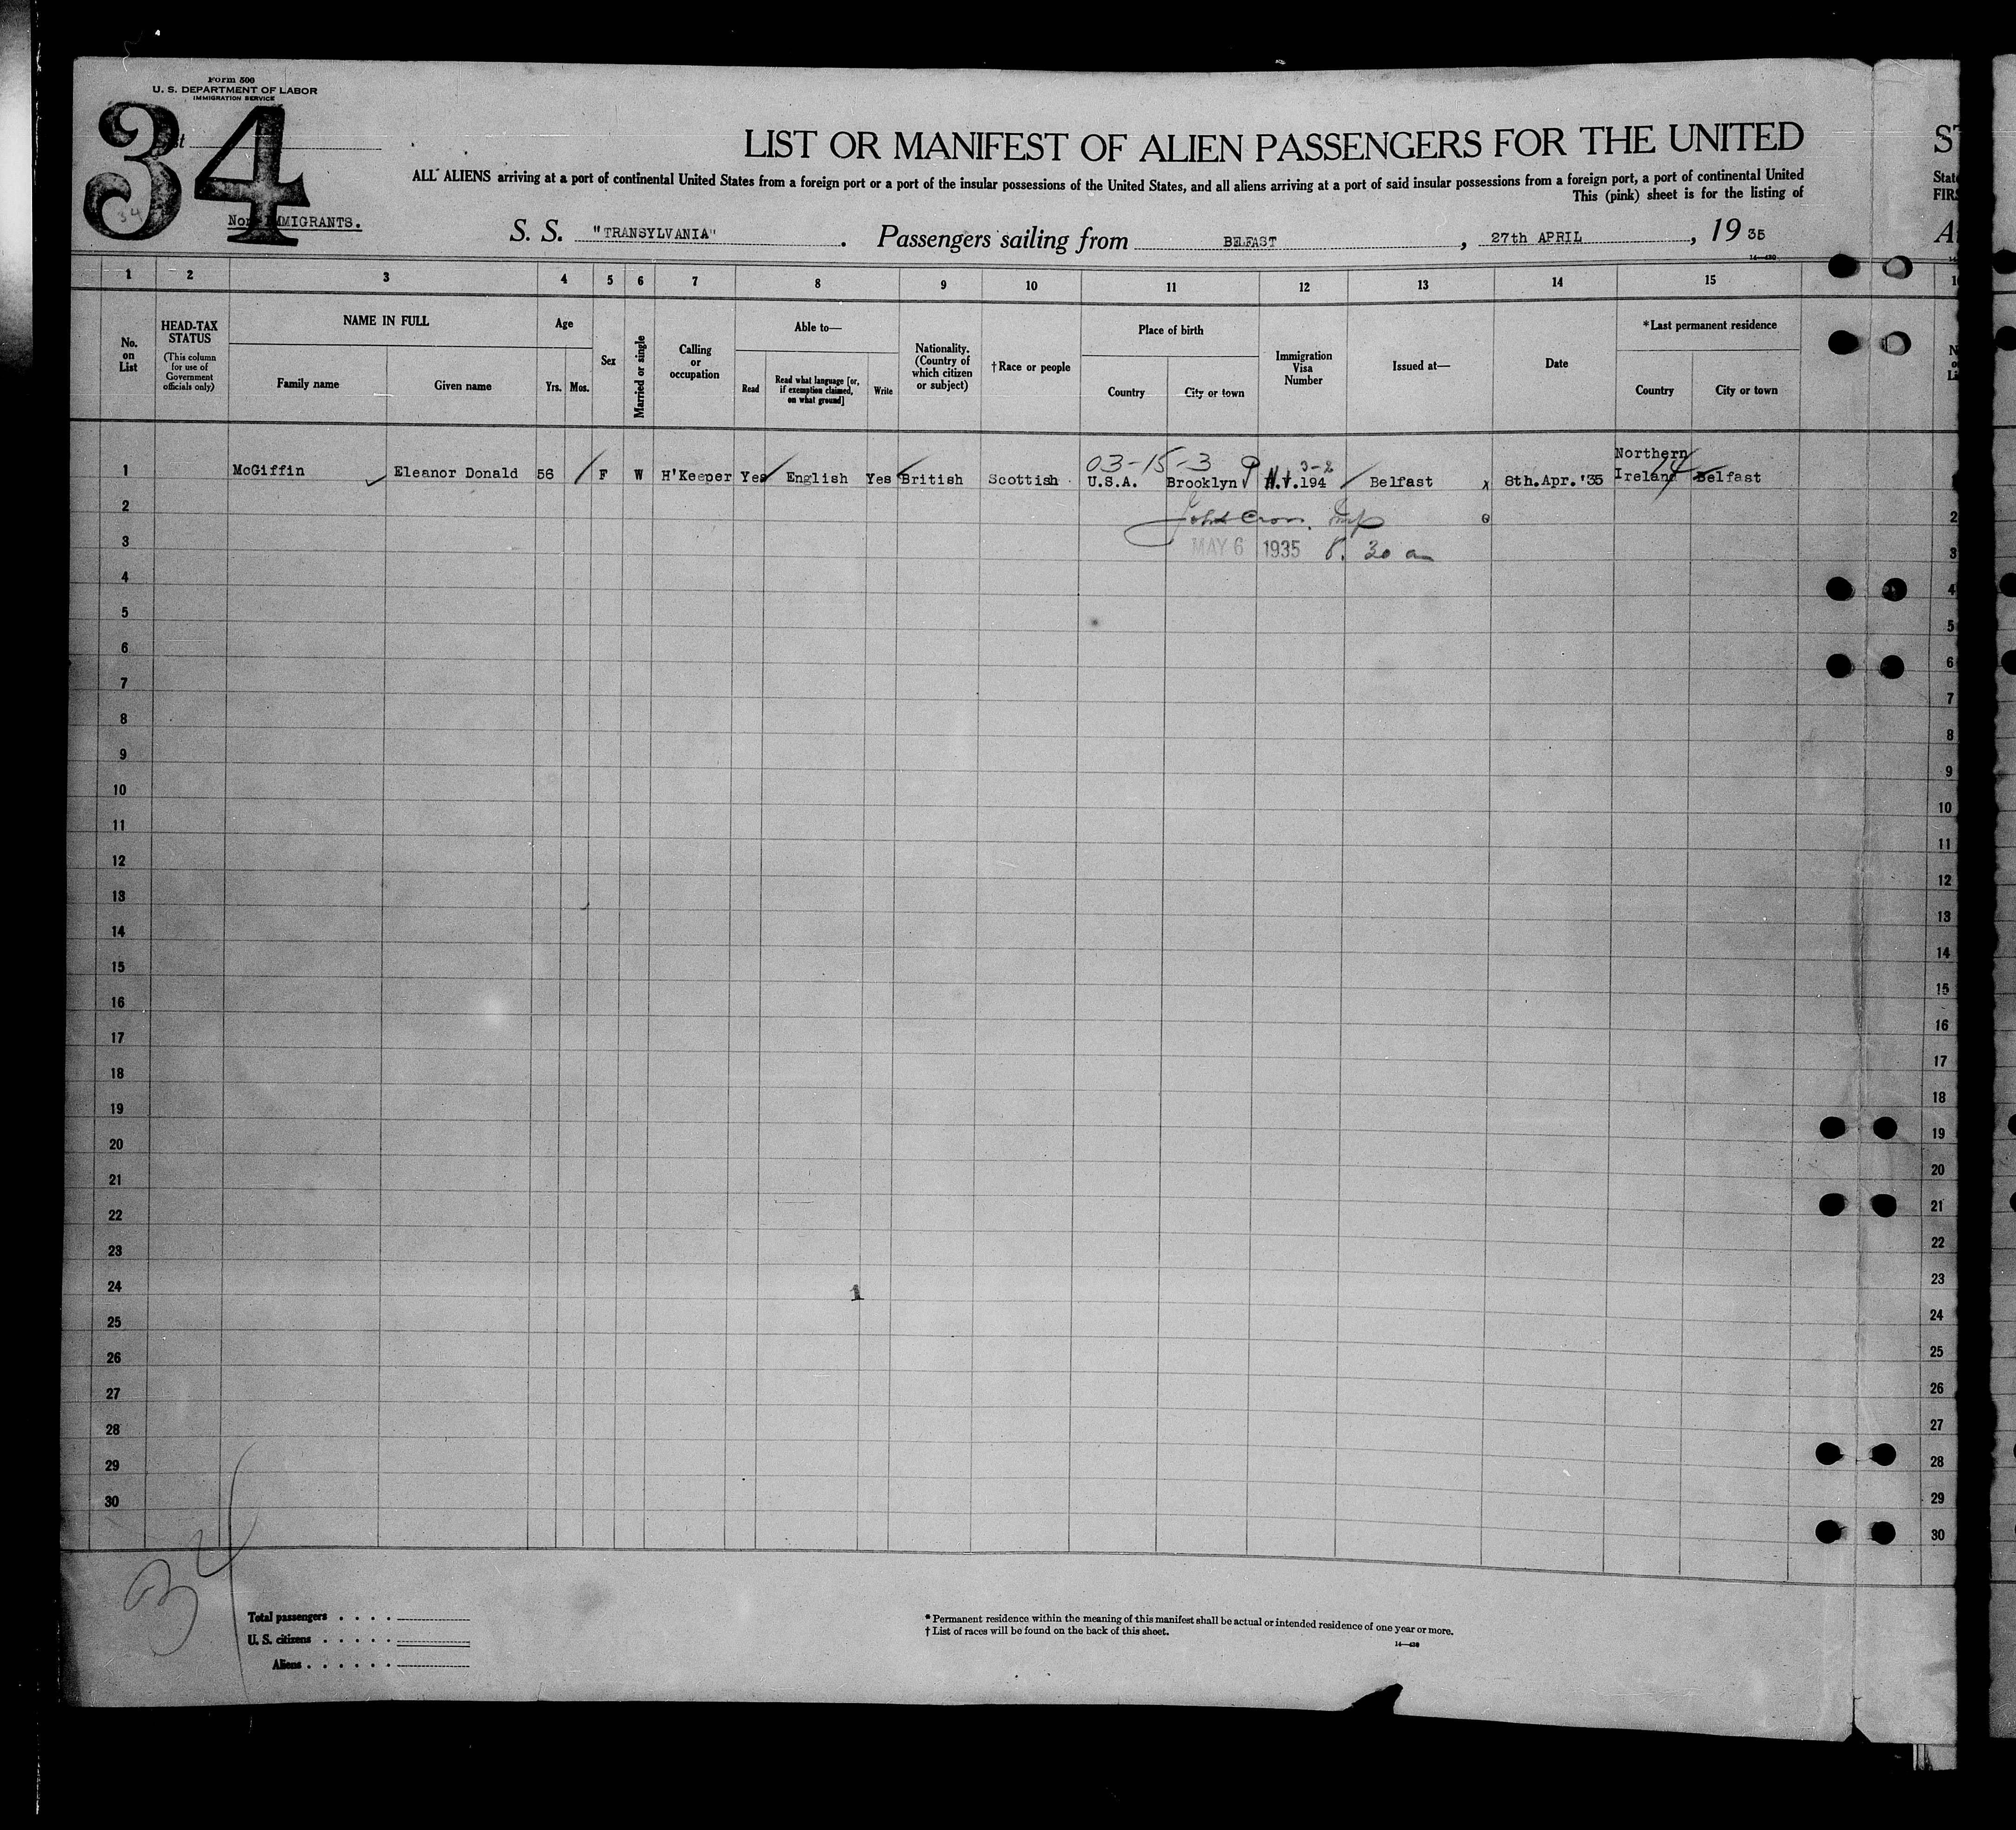 Form 500
U. S. DEPARTMENT OF LABOR
IMMIGRATION SERVICE
34
34
Non-IMMIGRANTS.
LIST OR MANIFEST OF ALIEN PASSENGERS FOR THE UNITED
ALL ALIENS arriving at a port of continental United States from a foreign port or a port of the insular possessions of the United States, and all aliens arriving at a port of said insular possessions from a foreign port, a port of continental United
This (pink) sheet is for the listing of
S. S. "TRANSYLVANIA" . Passengers sailing from BELFAST , 27th APRIL , 19 35
1 2 3 4 5 6 7 8 9 10 11 12 13 14 15
No. on List
HEAD-TAX STATUS
(This column for use of Government officials only)
NAME IN FULL
Family name
Given name
Age
Yrs. Mos.
Sex
Married or single
Calling or occupation
Able to—
Read
Read what language [or, if exemption claimed, on what ground]
Write
Nationality. (Country of which citizen or subject)
†Race or people
Place of birth
Country
City or town
Immigration Visa Number
Issued at—
Date
*Last permanent residence
Country
City or town
03-15-3 3-2 Northern
1 McGiffin Eleanor Donald 56 F W H'Keeper Yes English Yes British Scottish U.S.A. Brooklyn N.V.194 Belfast 8th.Apr.'35 Ireland Belfast
2
3 MAY 6 1935 8. 30 am
4
5
6
7
8
9
10
11
12
13
14
15
16
17
18
19
20
21
22
23
24 1
25
26
27
28
29
30
34
Total passengers
U. S. citizens
Aliens
* Permanent residence within the meaning of this manifest shall be actual or intended residence of one year or more.
† List of races will be found on the back of this sheet.
14—430
ST
State
FIRS
2
3
4
5
6
7
8
9
10
11
12
13
14
15
16
17
18
19
20
21
22
23
24
25
26
27
28
29
30